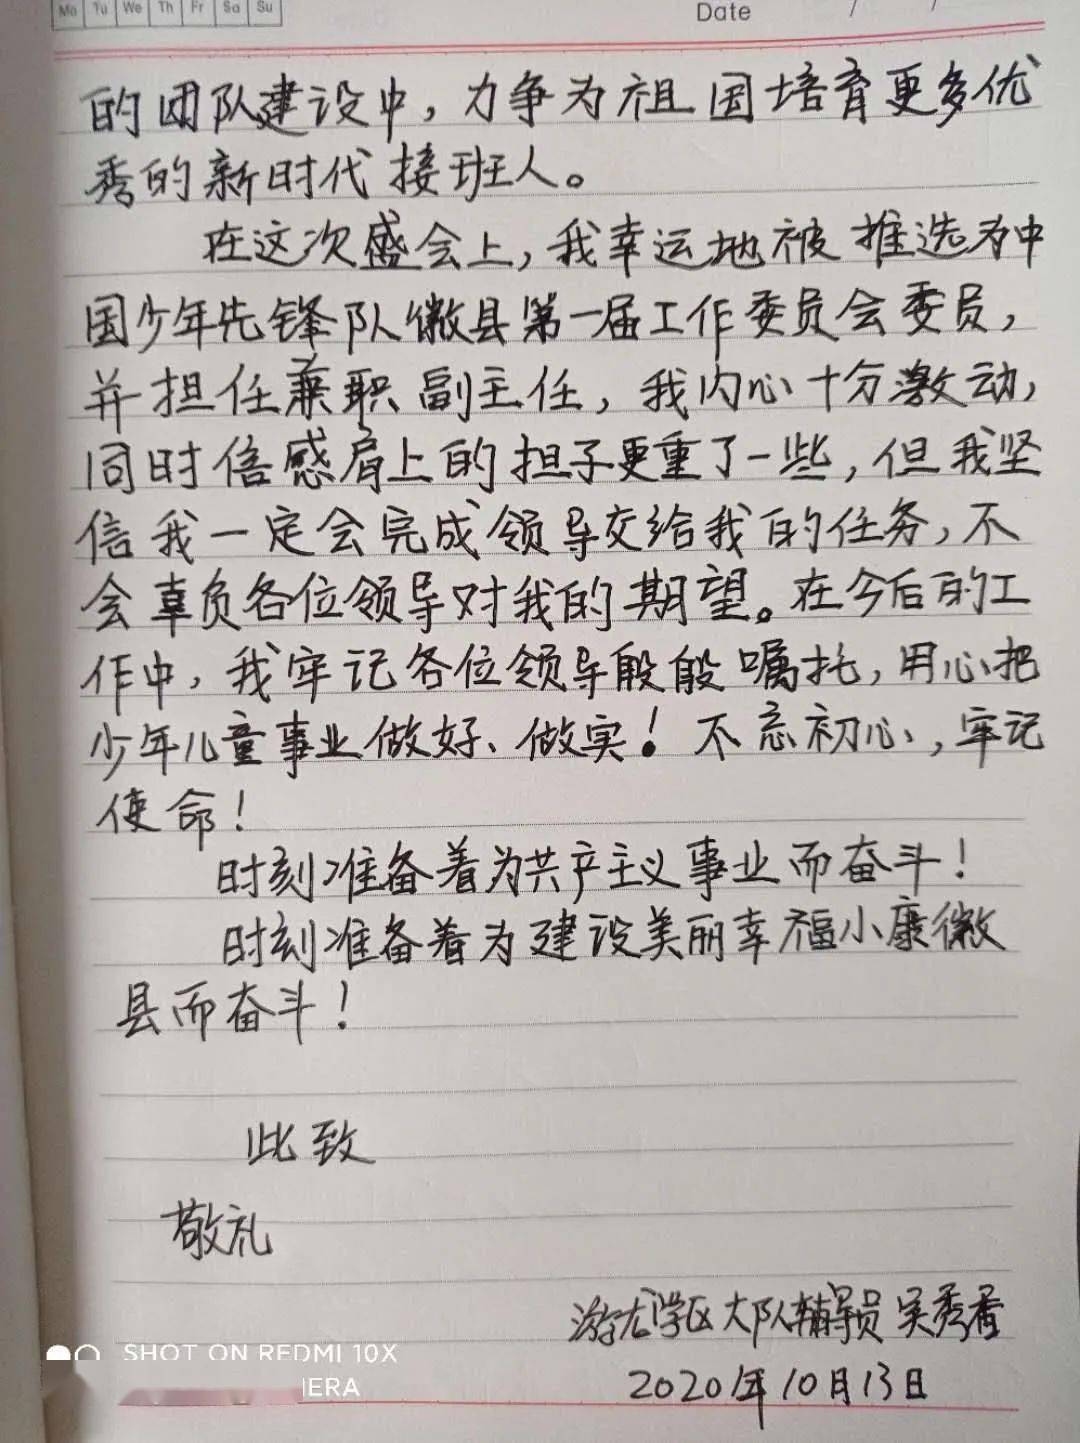 Mo Tu We Th Fr Sa Su
Date / /
的团队建设中，力争为祖国培育更多优
秀的新时代接班人。
在这次盛会上，我幸运地被推选为中
国少年先锋队徽县第一届工作委员会委员，
并担任兼职副主任，我内心十分激动，
同时倍感肩上的担子更重了一些，但我坚
信我一定会完成领导交给我的任务，不
会辜负各位领导对我的期望。在今后的工
作中，我牢记各位领导殷殷嘱托，用心把
少年儿童事业做好、做实！不忘初心，牢记
使命！
时刻准备着为共产主义事业而奋斗！
时刻准备着为建设美丽幸福小康徽
县而奋斗！
此致
敬礼
游龙学区大队辅导员 吴秀香
2020年10月13日
SHOT ON REDMI 10X
ERA